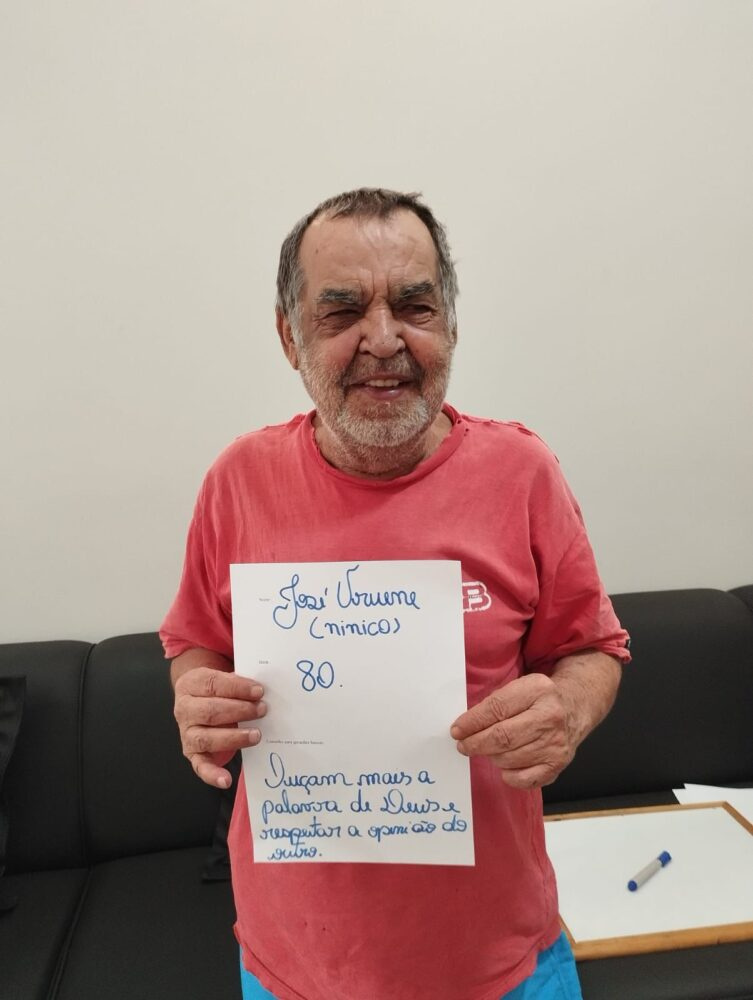 Nome:
José Uruene
(ninico)
Idade:
80.
Conselho para gerações futuras:
Ouçam mais a
palavra de Deus e
respeitar a opinião do
outro.
B